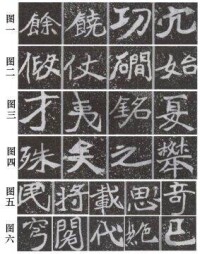 图一 餘 饒 功 穴
图二 傲 仗 磵 始
图三 才 夷 銘 夏
图四 殊 矣 之 攀
图五 民 將 載 思 奇
图六 穹 閣 代 絶 已